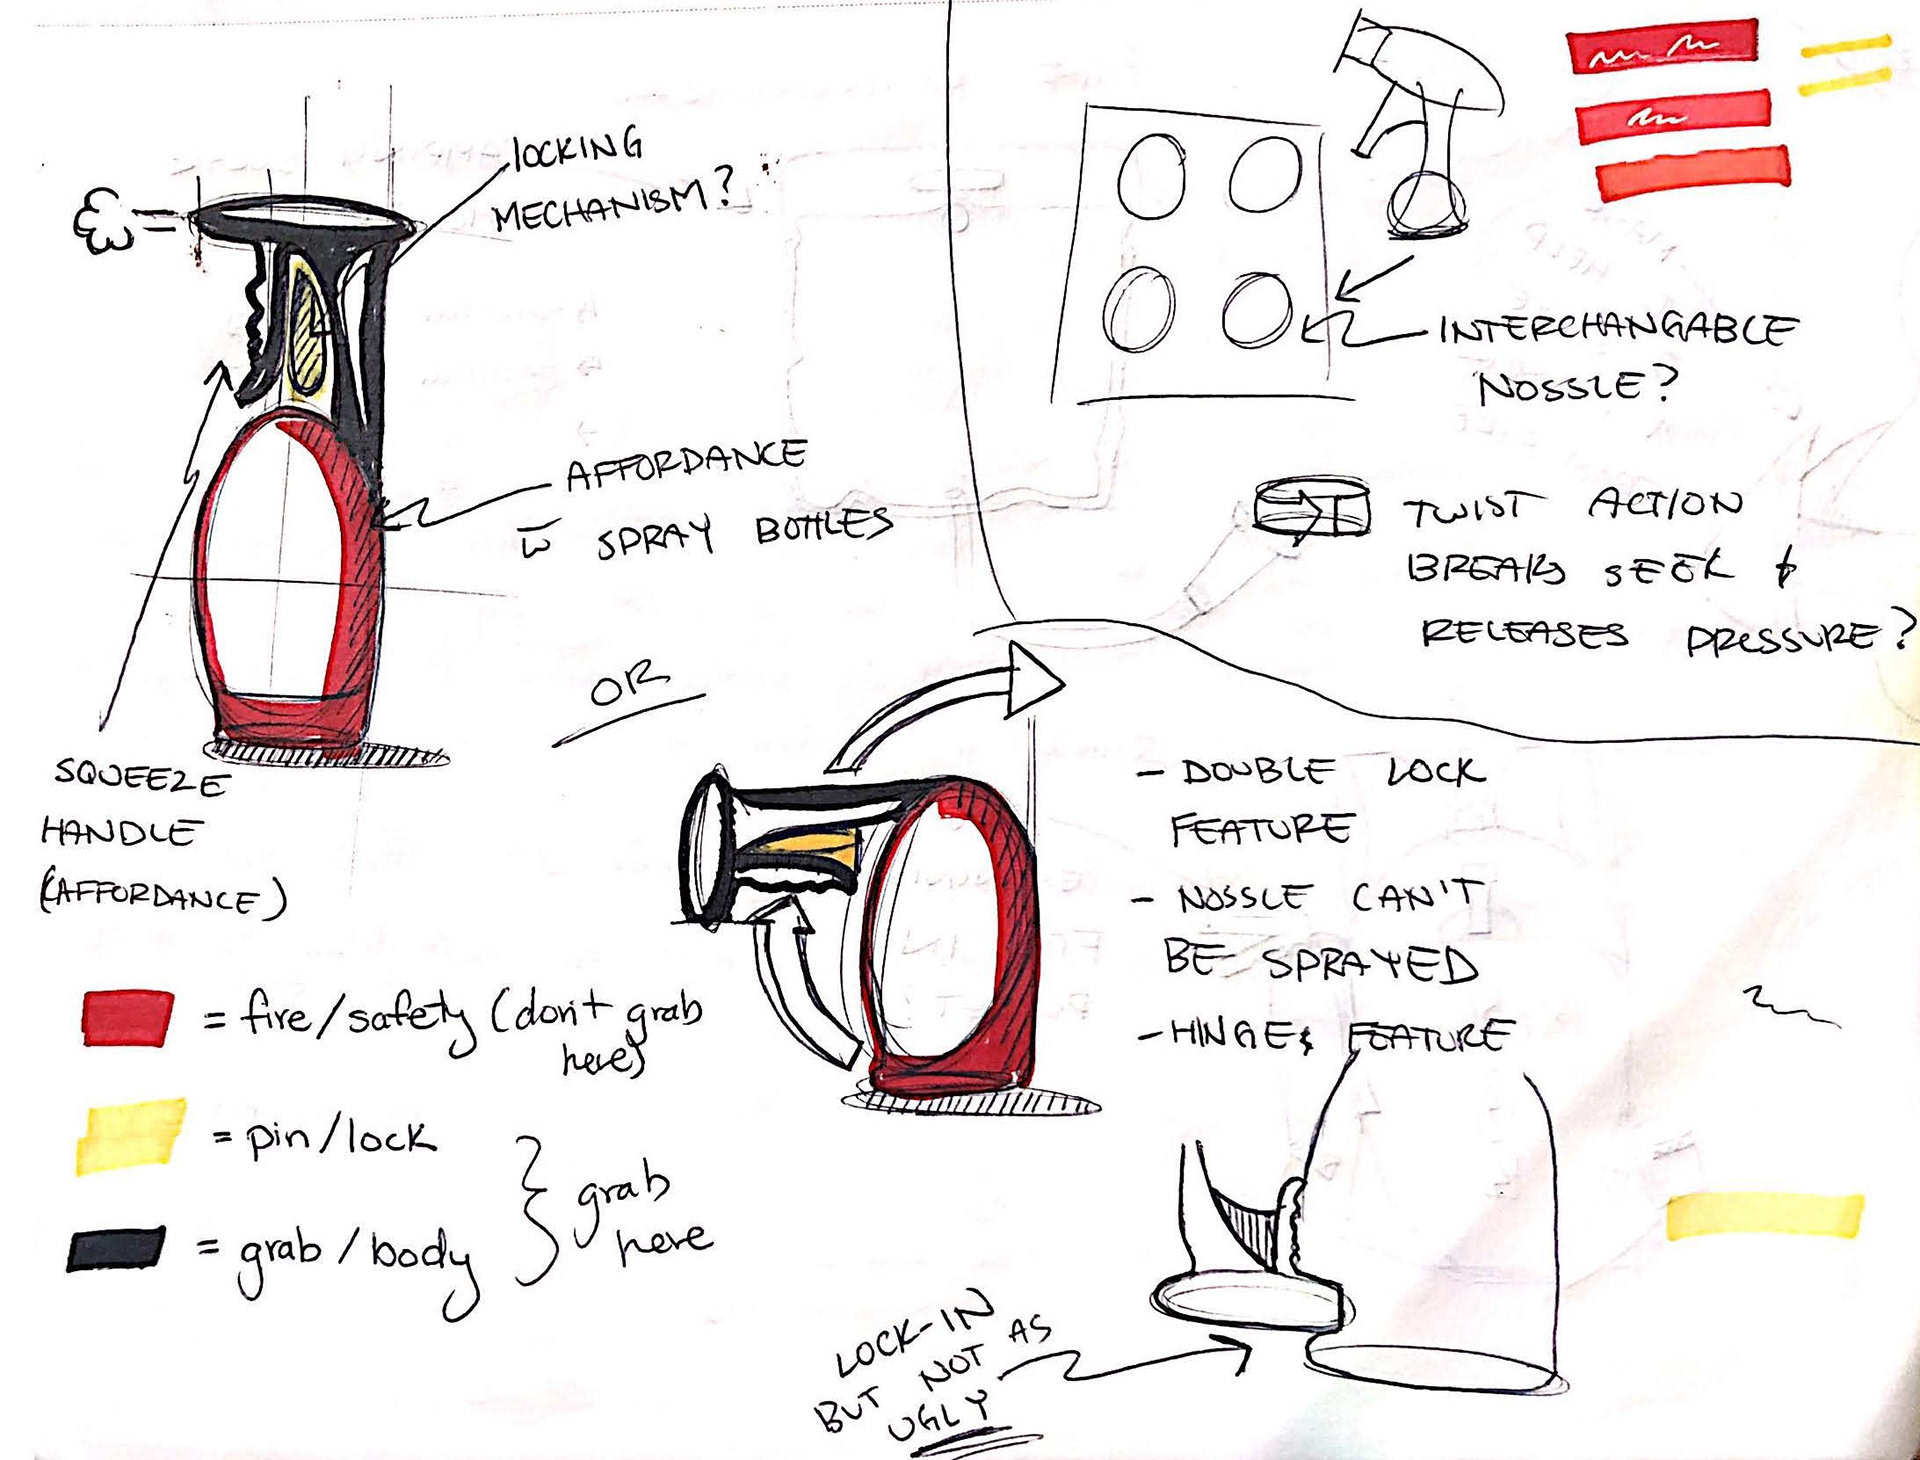 LOCKING
MECHANISM?
AFFORDANCE
w̄ SPRAY BOTTLES
SQUEEZE
HANDLE
(AFFORDANCE)
OR
= fire/safety (don't grab
here)
= pin/lock
= grab/body
grab
here
INTERCHANGABLE
NOSSLE?
TWIST ACTION
BREAKS SEEK &
RELEASES PRESSURE?
- DOUBLE LOCK
FEATURE
- NOSSLE CAN'T
BE SPRAYED
- HINGE FEATURE
LOCK-IN
BUT NOT AS
UGLY